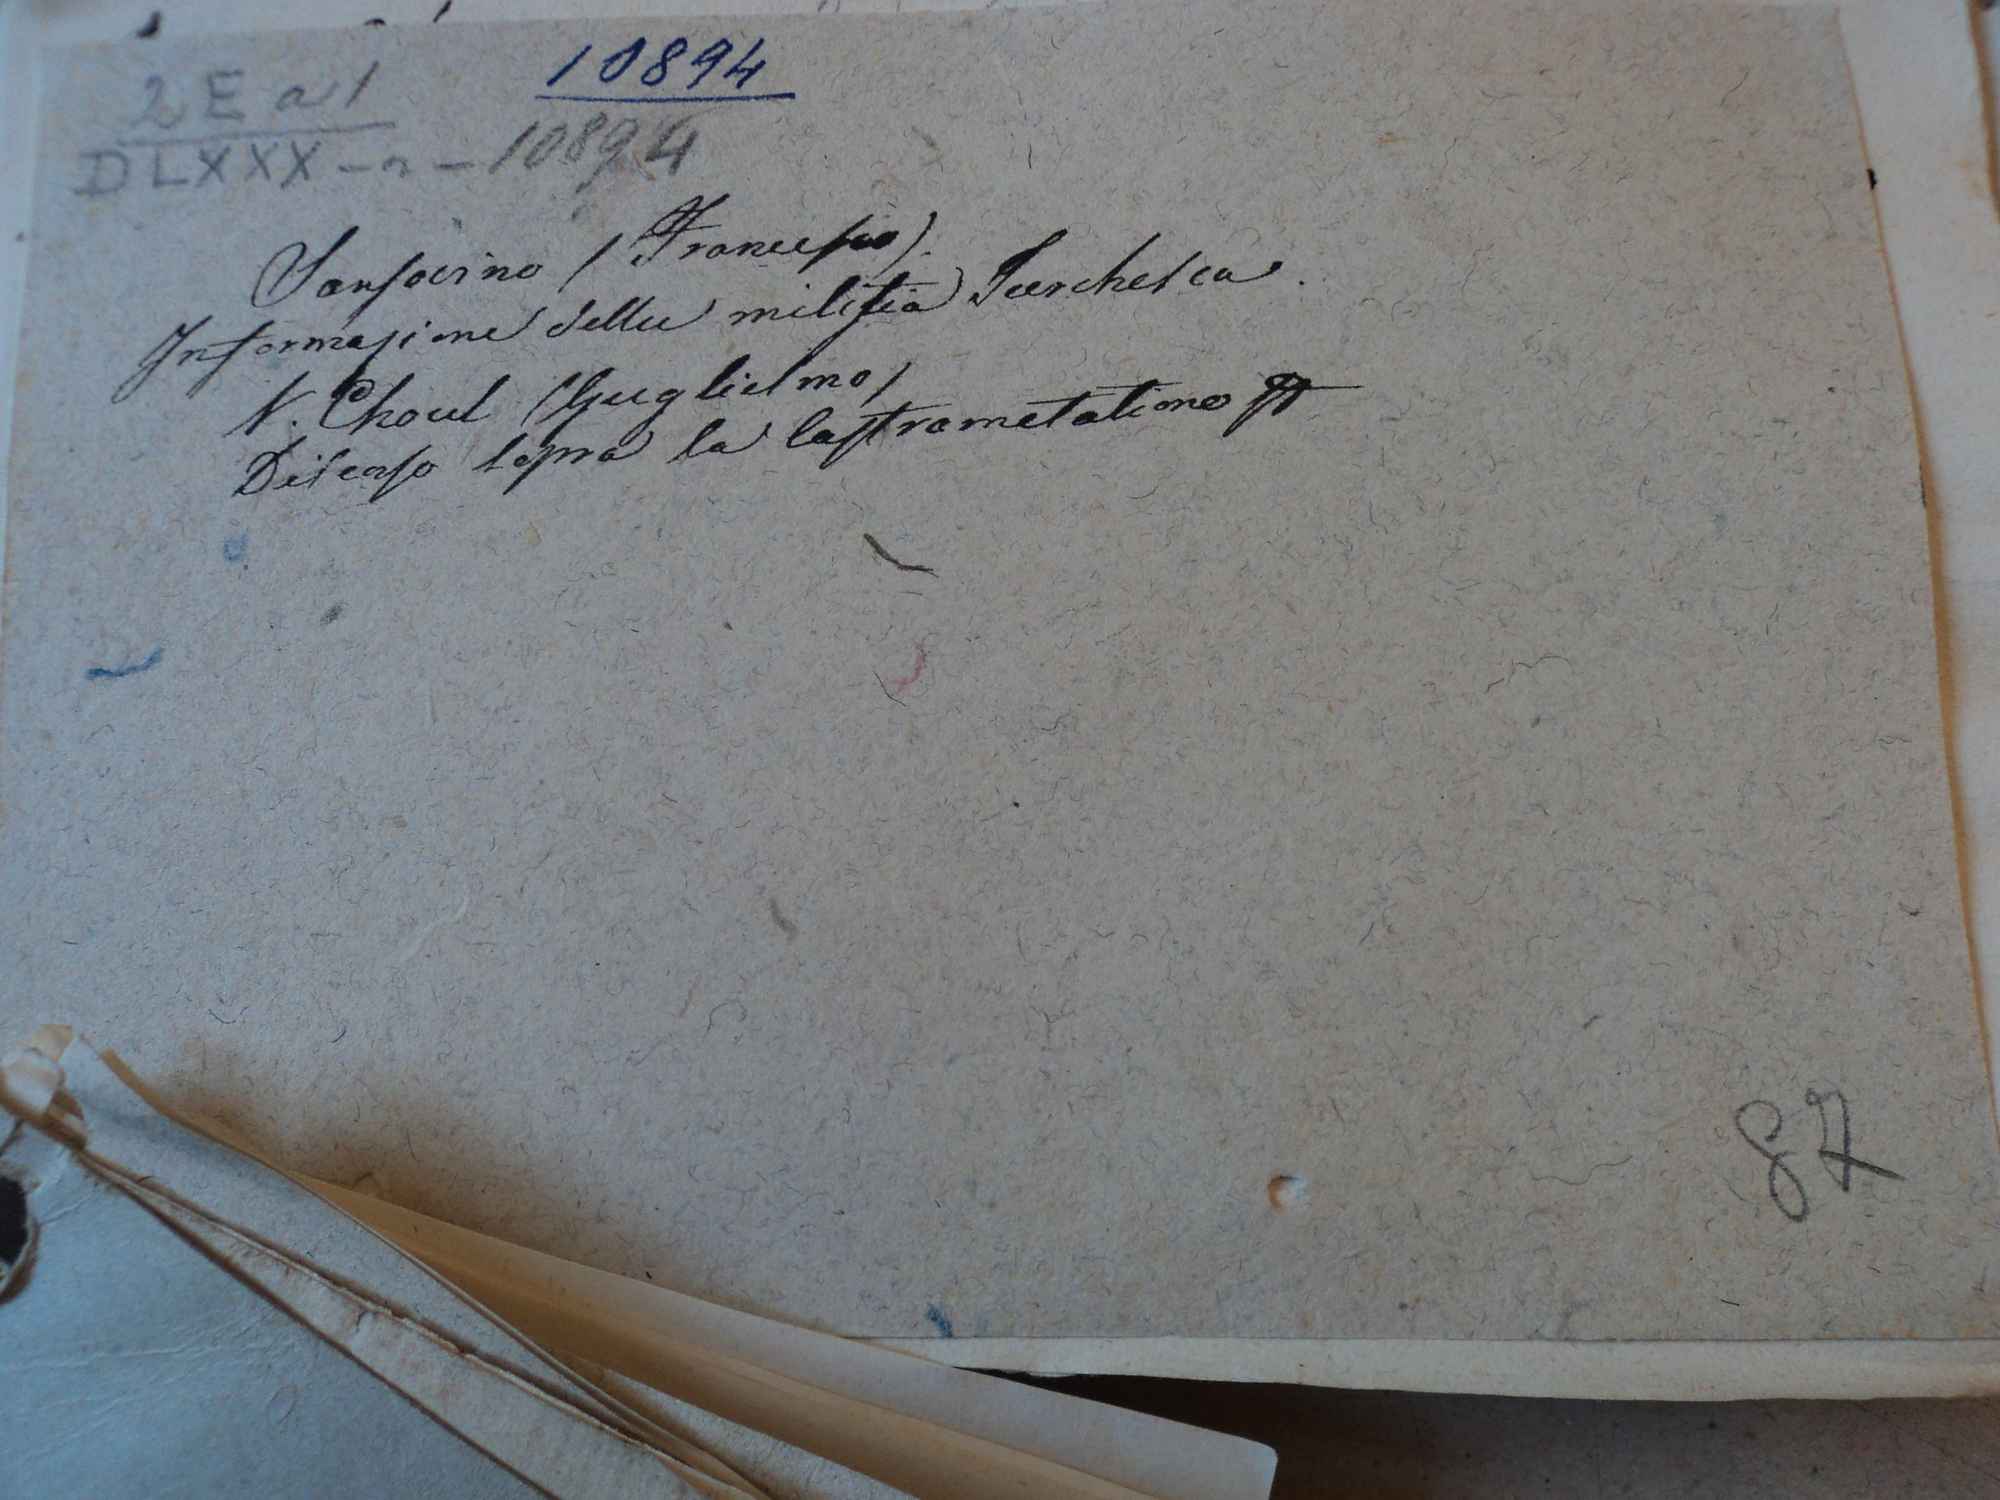 10894
2 E a 1
DLXXX - n - 10894
Sansovino (Francesco).
Informasione della militia Turchesca.
V. Choul (Guglielmo)
Discorso sopra la Castrametatione
87